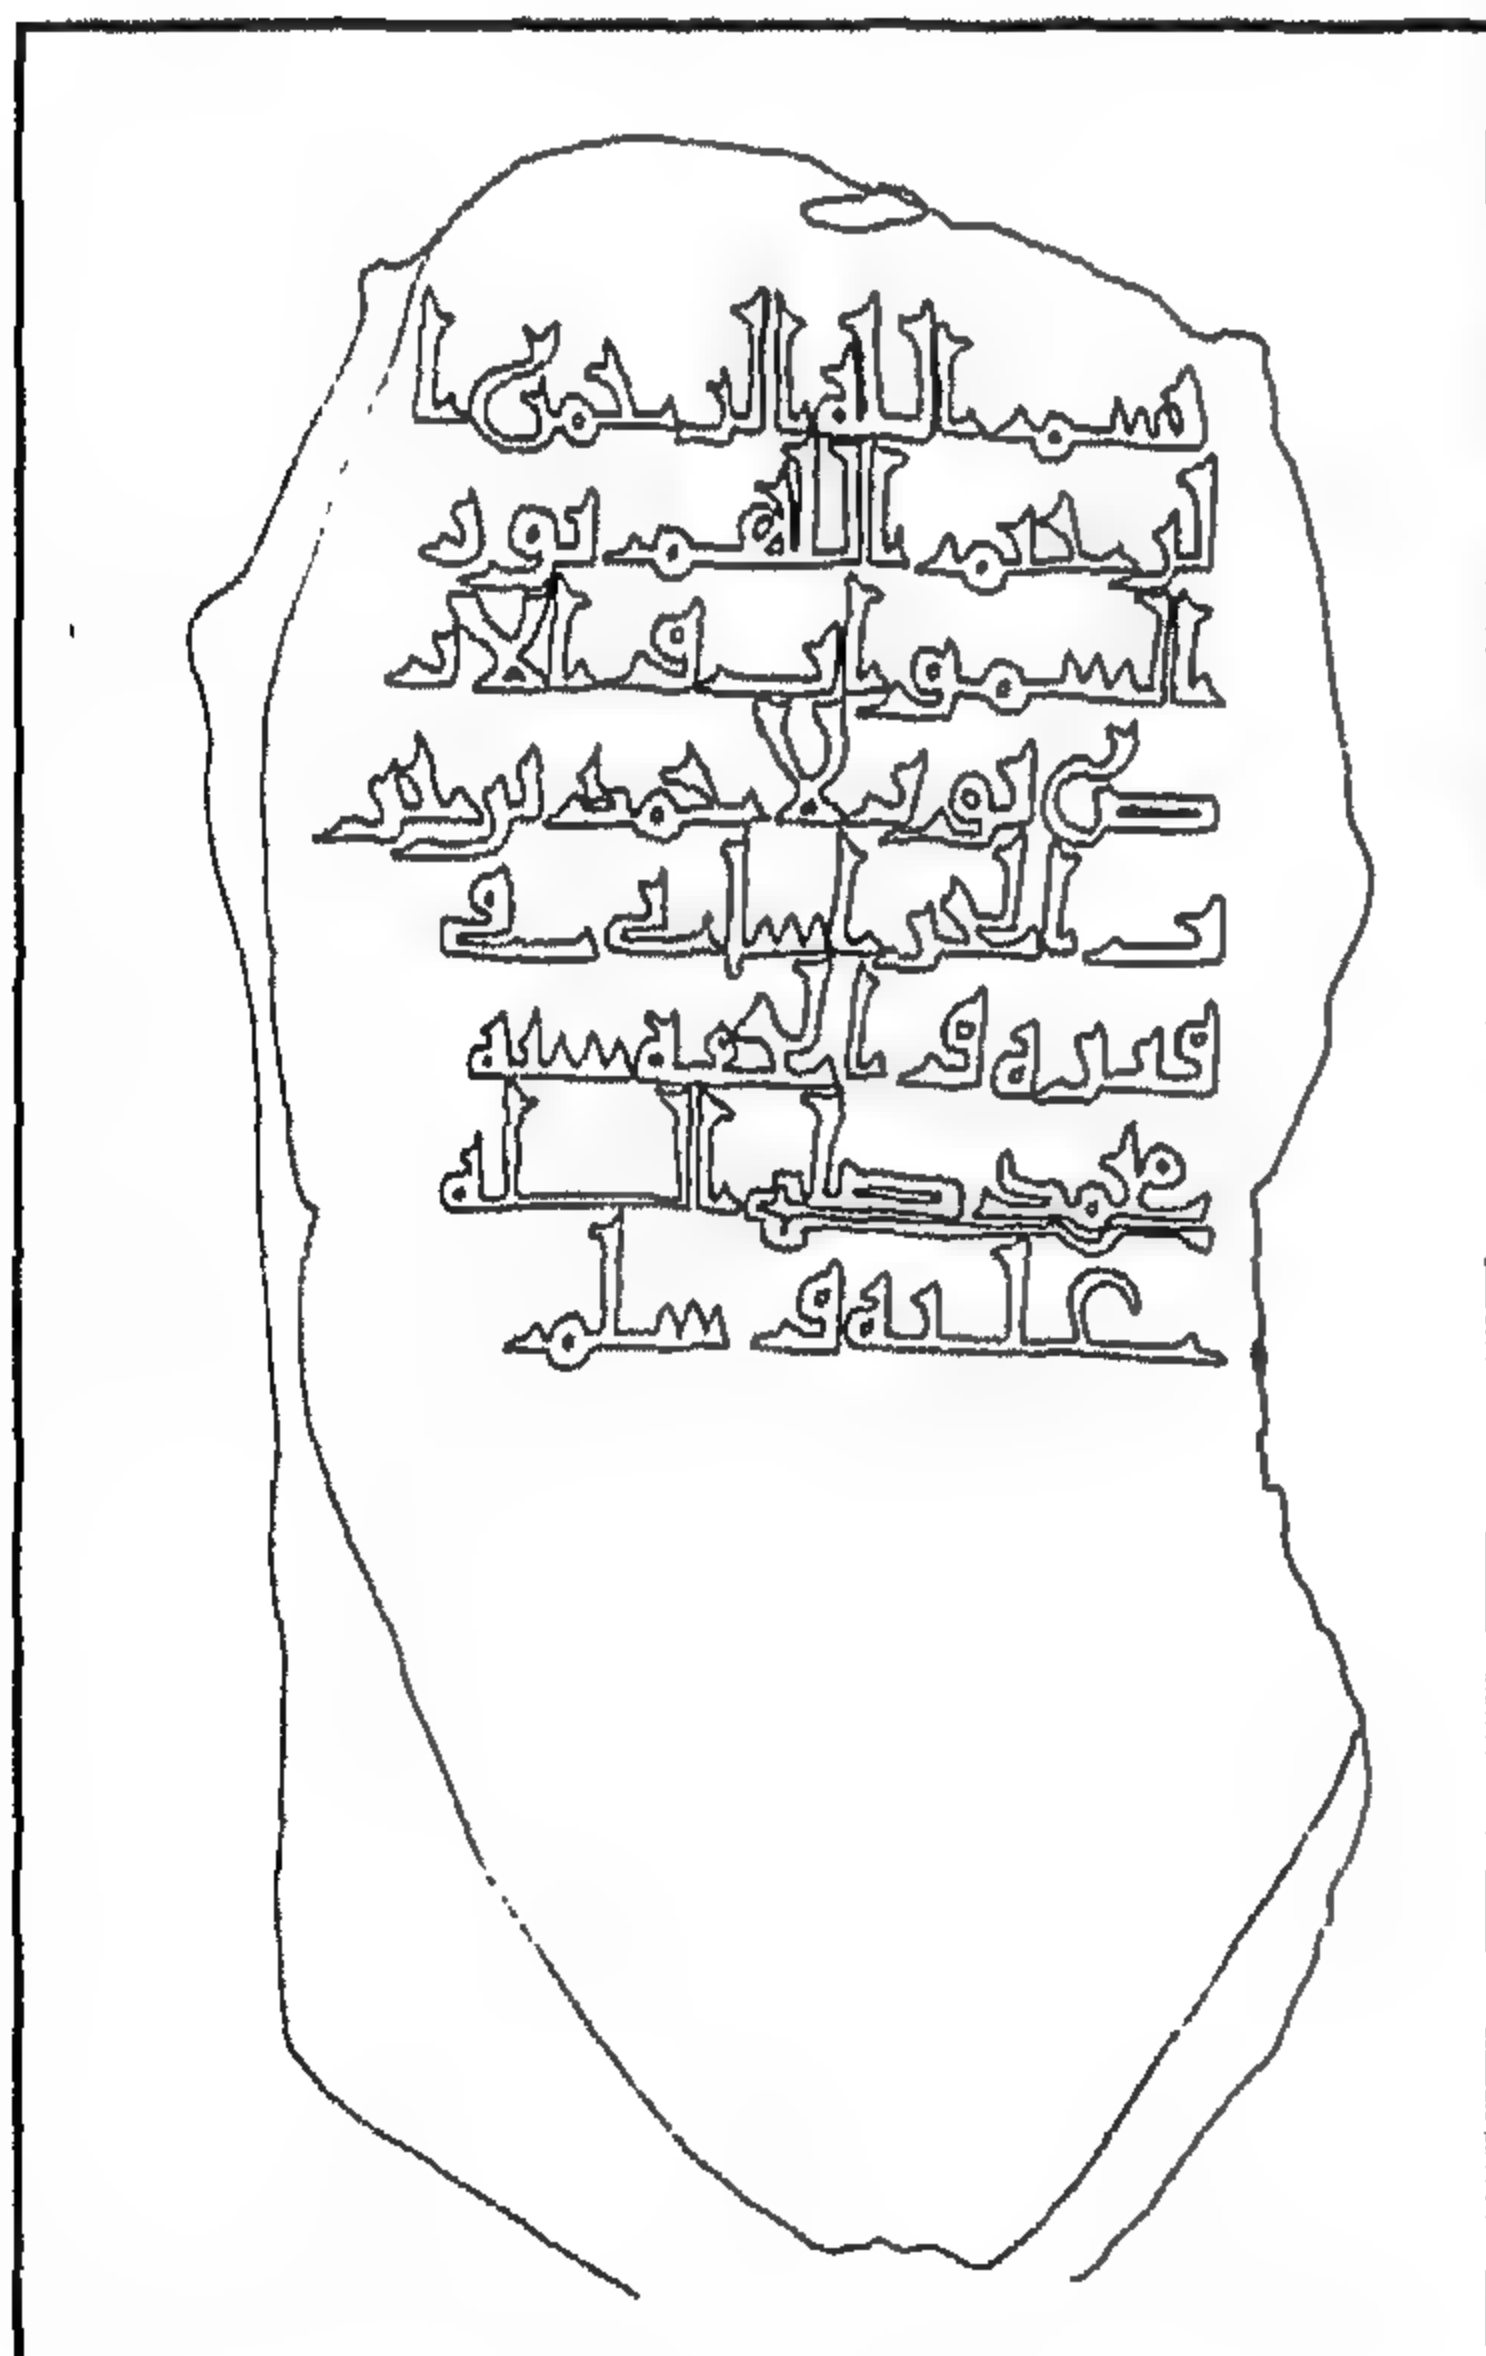 بسم الله الرحمن ا
لرحيم اللهم نور
السموت و الار
ض نور لاحمد بن يز
يد الخراساني في
قبره و الحقه بنبيه
محمد صلى الله
عليه و سلم